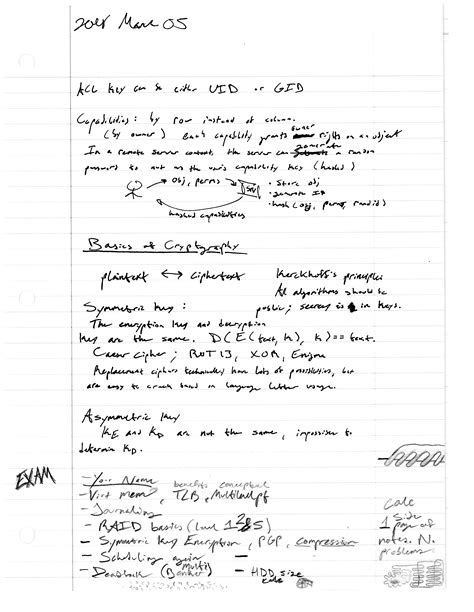 2018 March 05
ACL key can be either UID or GID
Capabilities: by row instead of column.
(by owner) each capability grants owner rights on an object
In a remote server context, the server can generate a random
password to act as the user's capability key (hashed)
obj, perms
SRV
• Store obj
• generate ID
• hash(obj, perms, randid)
hashed capabilities
Basics of Cryptography
plaintext ↔ ciphertext
Kerckhoff's principles
All algorithms should be
public; secrecy is in keys.
Symmetric key:
The encryption key and decryption
key are the same. D(E(text, k), k) == text.
Caesar cipher; ROT13, XOR, Enigma
Replacement ciphers technically have lots of possibilities, but
are easy to crack based on language letter usage.
Asymmetric key
KE and KD are not the same, impossible to
determine KD.
EXAM
- Your Name
benefits conceptual
- Virt mem, TLB, Multilevel pt
- Journaling
- RAID basics (Level 1 5)
- Symmetric Key Encryption, PGP, compression
- Scheduling again
- Deadlock (Multi Banker)
- HDD size calc
calc
1 side
1 page of
notes. No
problems